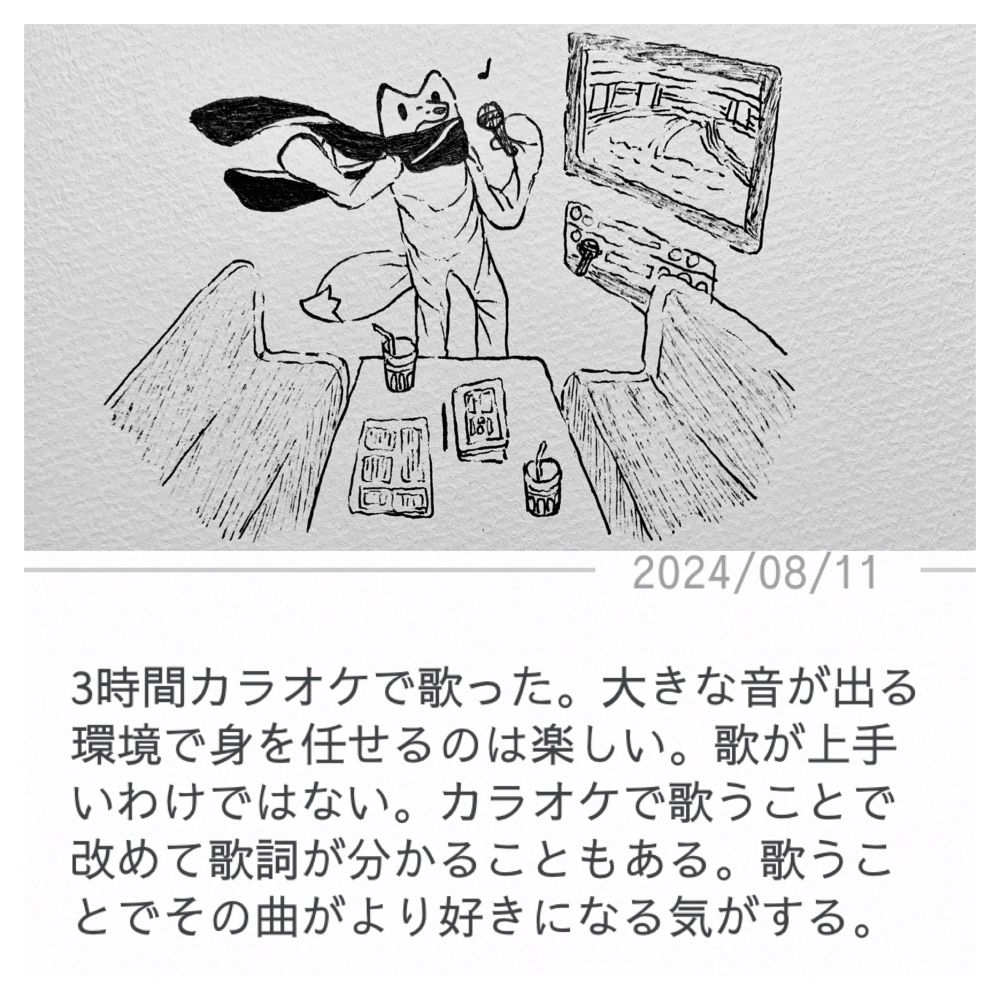 2024/08/11
3時間カラオケで歌った。大きな音が出る
環境で身を任せるのは楽しい。歌が上手
いわけではない。カラオケで歌うことで
改めて歌詞が分かることもある。歌うこ
とでその曲がより好きになる気がする。